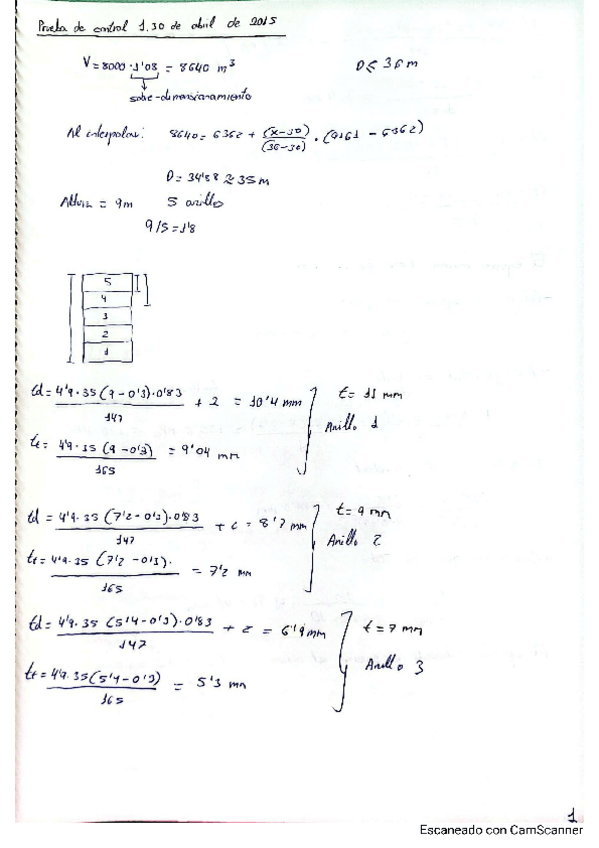 Prueba de control 1. 30 de abril de 2015
V = 8000 · 1'08 = 8640 m³    D ≤ 36 m
sobre-dimensionamiento
Al interpolar: 8640 = 6362 + (x-30)/(36-30) · (9161 - 6362)
D = 34'88 ≈ 35 m
Altura = 9m    5 anillo
9/5 = 1'8
5
4
3
2
1
td = 4'9·35(9-0'3)·0'83/147 + 2 = 10'4 mm    t = 11 mm
Anillo 1
tt = 4'9·35(9-0'3)/165 = 9'04 mm
td = 4'9·35(7'2-0'3)·0'83/147 + 2 = 8'7 mm    t = 9 mm
Anillo 2
tt = 4'9·35(7'2-0'3)·/165 = 7'2 mm
td = 4'9·35(5'4-0'3)·0'83/147 + 2 = 6'9 mm    t = 7 mm
Anillo 3
tt = 4'9·35(5'4-0'3)/165 = 5'3 mm
1
Escaneado con CamScanner